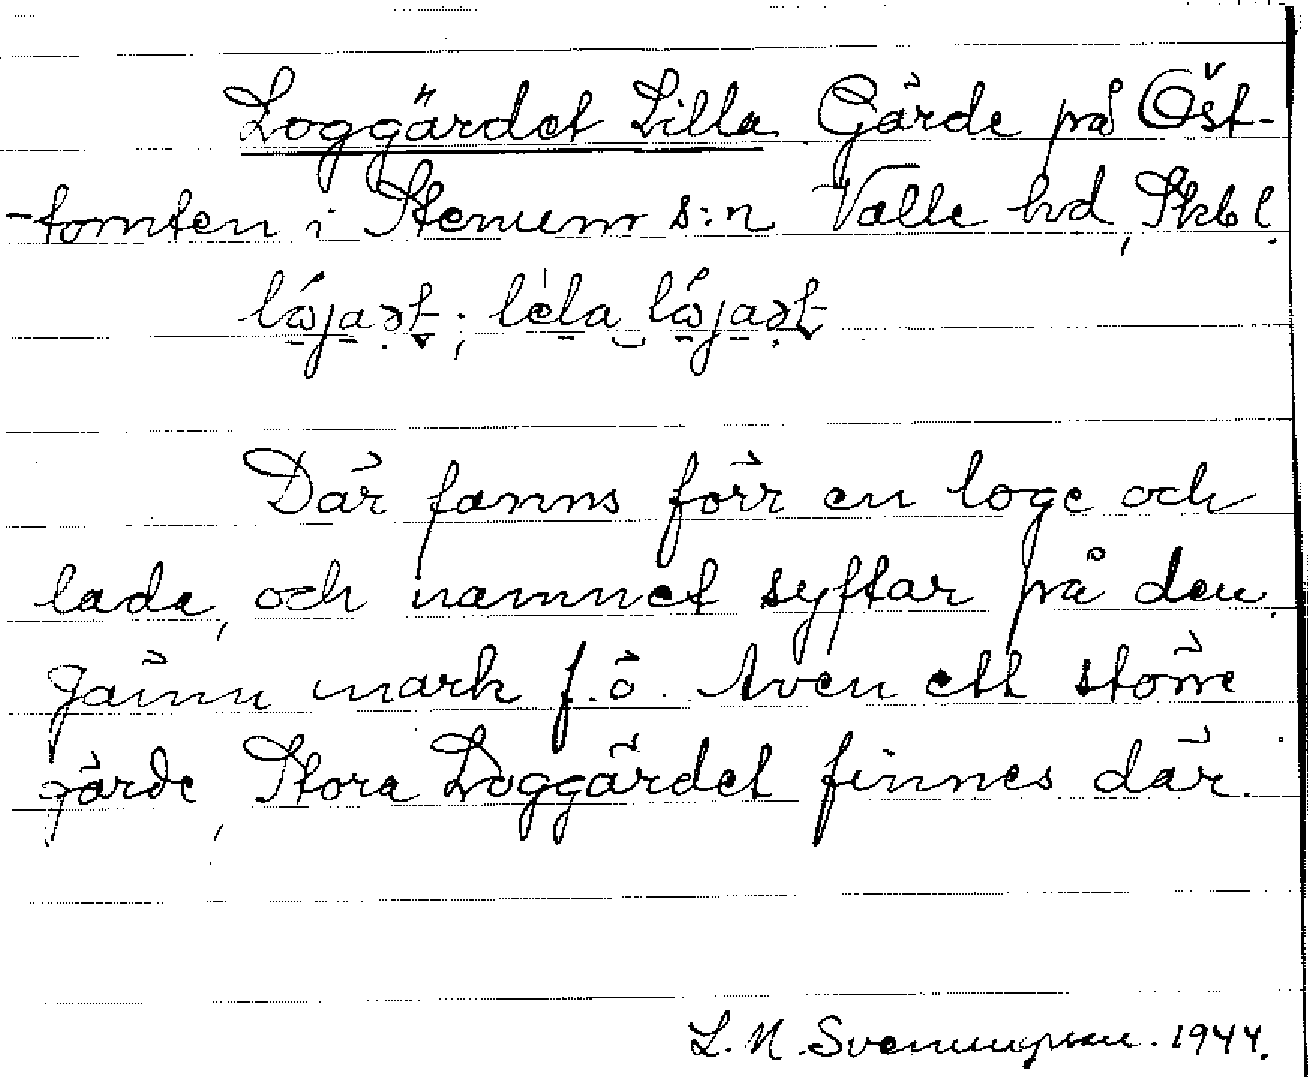 Loggärdet Lilla Gärde på Öst-
-tomten i Stenum s:n Valle hd, Skbl.
Där fanns förr en loge och
lada, och namnet syftar på den.
Jämn mark f. ö. Även ett större
gärde, Stora Loggärdet finnes där.
L. N. Svenungsson. 1944.